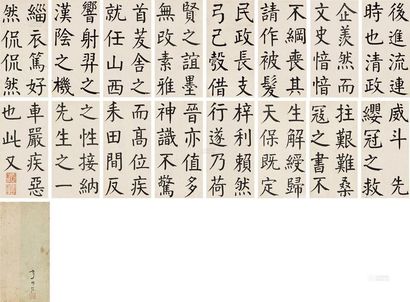 後進流連
時也清政
企羨然而
文史愔愔
不綱喪其
請作被髮
民政長支
弓己穀借
賢之誼墨
無改素雅
首茇舍之
就任山西
響射羿之
漢陰之機
緇衣篤好
然侃侃然
威斗先
纓冠之救
拄艱難桑
冠之書不
生解綬歸
天保既定
梓利賴然
行遂乃荷
晉亦值多
神識不驚
而高位疾
耒田間反
之性接納
先生之一
車嚴疾惡
也此又